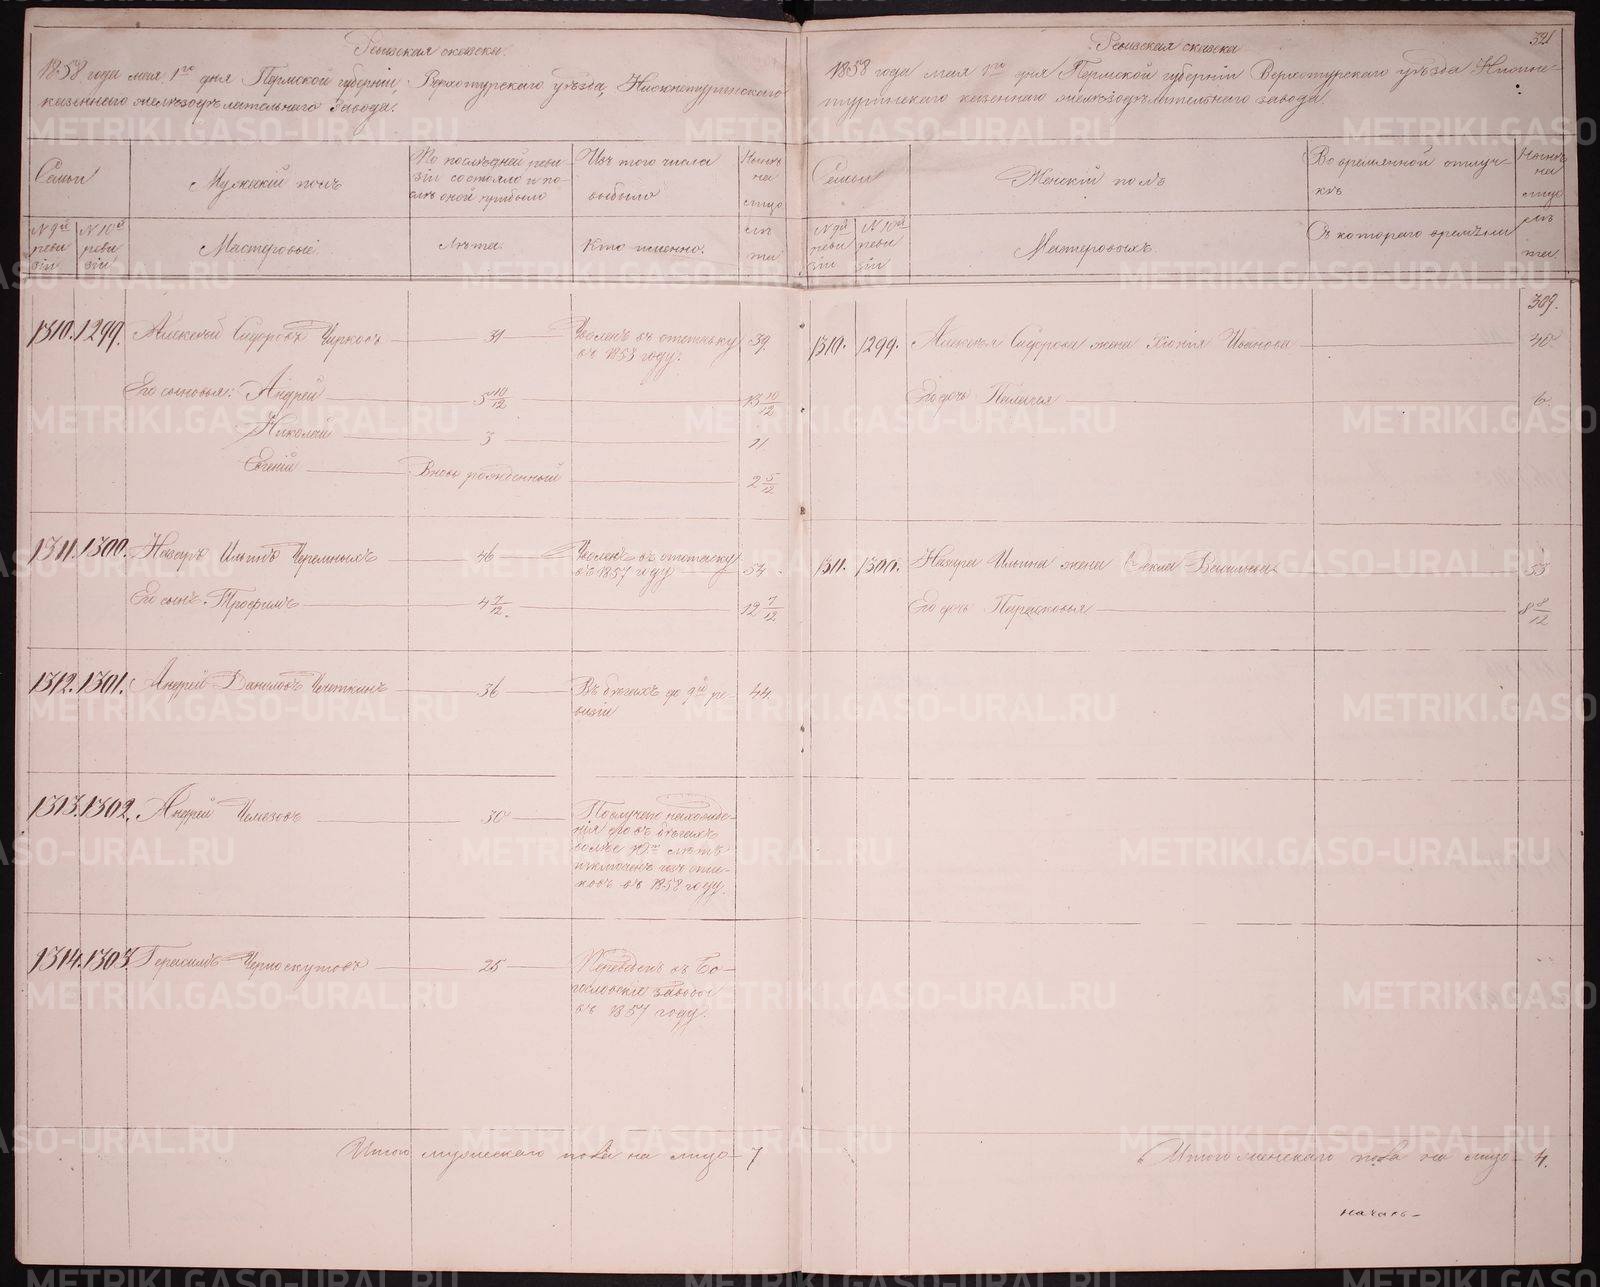 Ревизская сказка.
1858 года мая 1го дня Пермской губернии, Верхотурского уѣзда, Нижнетуринского
казеннаго желѣзодѣлательнаго завода.
Семьи
Мужеский полъ
По последней реви-
зіи состояло и по-
слѣ оной прибыло
Изъ того числа
выбыло
Нынѣ
на
лицо
№ 9й
реви
зіи
№ 10й
реви
зіи
Мастеровые
Лѣта.
Кто именно.
лѣ
та
1310. 1299. Алексей Сидоровъ Чирковъ 31 Уволенъ въ отставку 39
въ 1853 году.
Его сыновья: Андрей 5 10/12 13 10/12
Николай 3 11
Евгеній Вновь рожденный 2 5/12
1311. 1300. Назаръ Ильинъ Черемныхъ 46 Уволенъ въ отставку 54
въ 1857 году
Его сынъ Трофимъ 4 7/12 12 7/12
1312. 1301. Андрей Даниловъ 36 Въ бѣгахъ до 9й ре- 44
визіи
1313. 1302. Андрей Чемезовъ 30 По случаю нахожде-
нія въ бѣгахъ
болѣе 10ти лѣтъ
исключенъ изъ спис-
ковъ въ 1858 году.
1314. 1303. Герасимъ Черноскутовъ 25 Переведенъ въ Бо-
гословскіе заводы
въ 1857 году.
Итого мужескаго пола на лицо 7
321
Ревизская сказка
1858 года мая 1го дня Пермской губерніи Верхотурскаго уѣзда Нижне-
туринскаго казеннаго желѣзодѣлательнаго завода.
Семьи
Женскій полъ
Во временной отлуч-
кѣ
Нынѣ
на
лицо
№ 9й
реви
зіи
№ 10й
реви
зіи
Мастеровыхъ
Съ котораго времени
лѣ
та
309.
1310. 1299. Алексея Сидорова жена Хіонія Иванова 40
Его дочь Пелагея 6
1311. 1300. Назара Ильина жена Ѳекла Васильева 53
Его дочь Парасковья 8 8/12
Итого женскаго пола на лицо 4.
METRIKI.GASO-URAL.RU